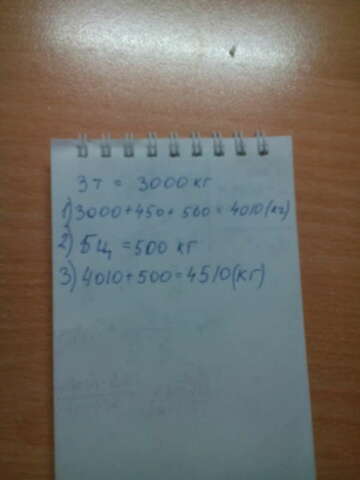 3 т = 3000 кг
1) 3000+450+560=4010(кг)
2) 5 ц = 500 кг
3) 4010+500=4510(кг)